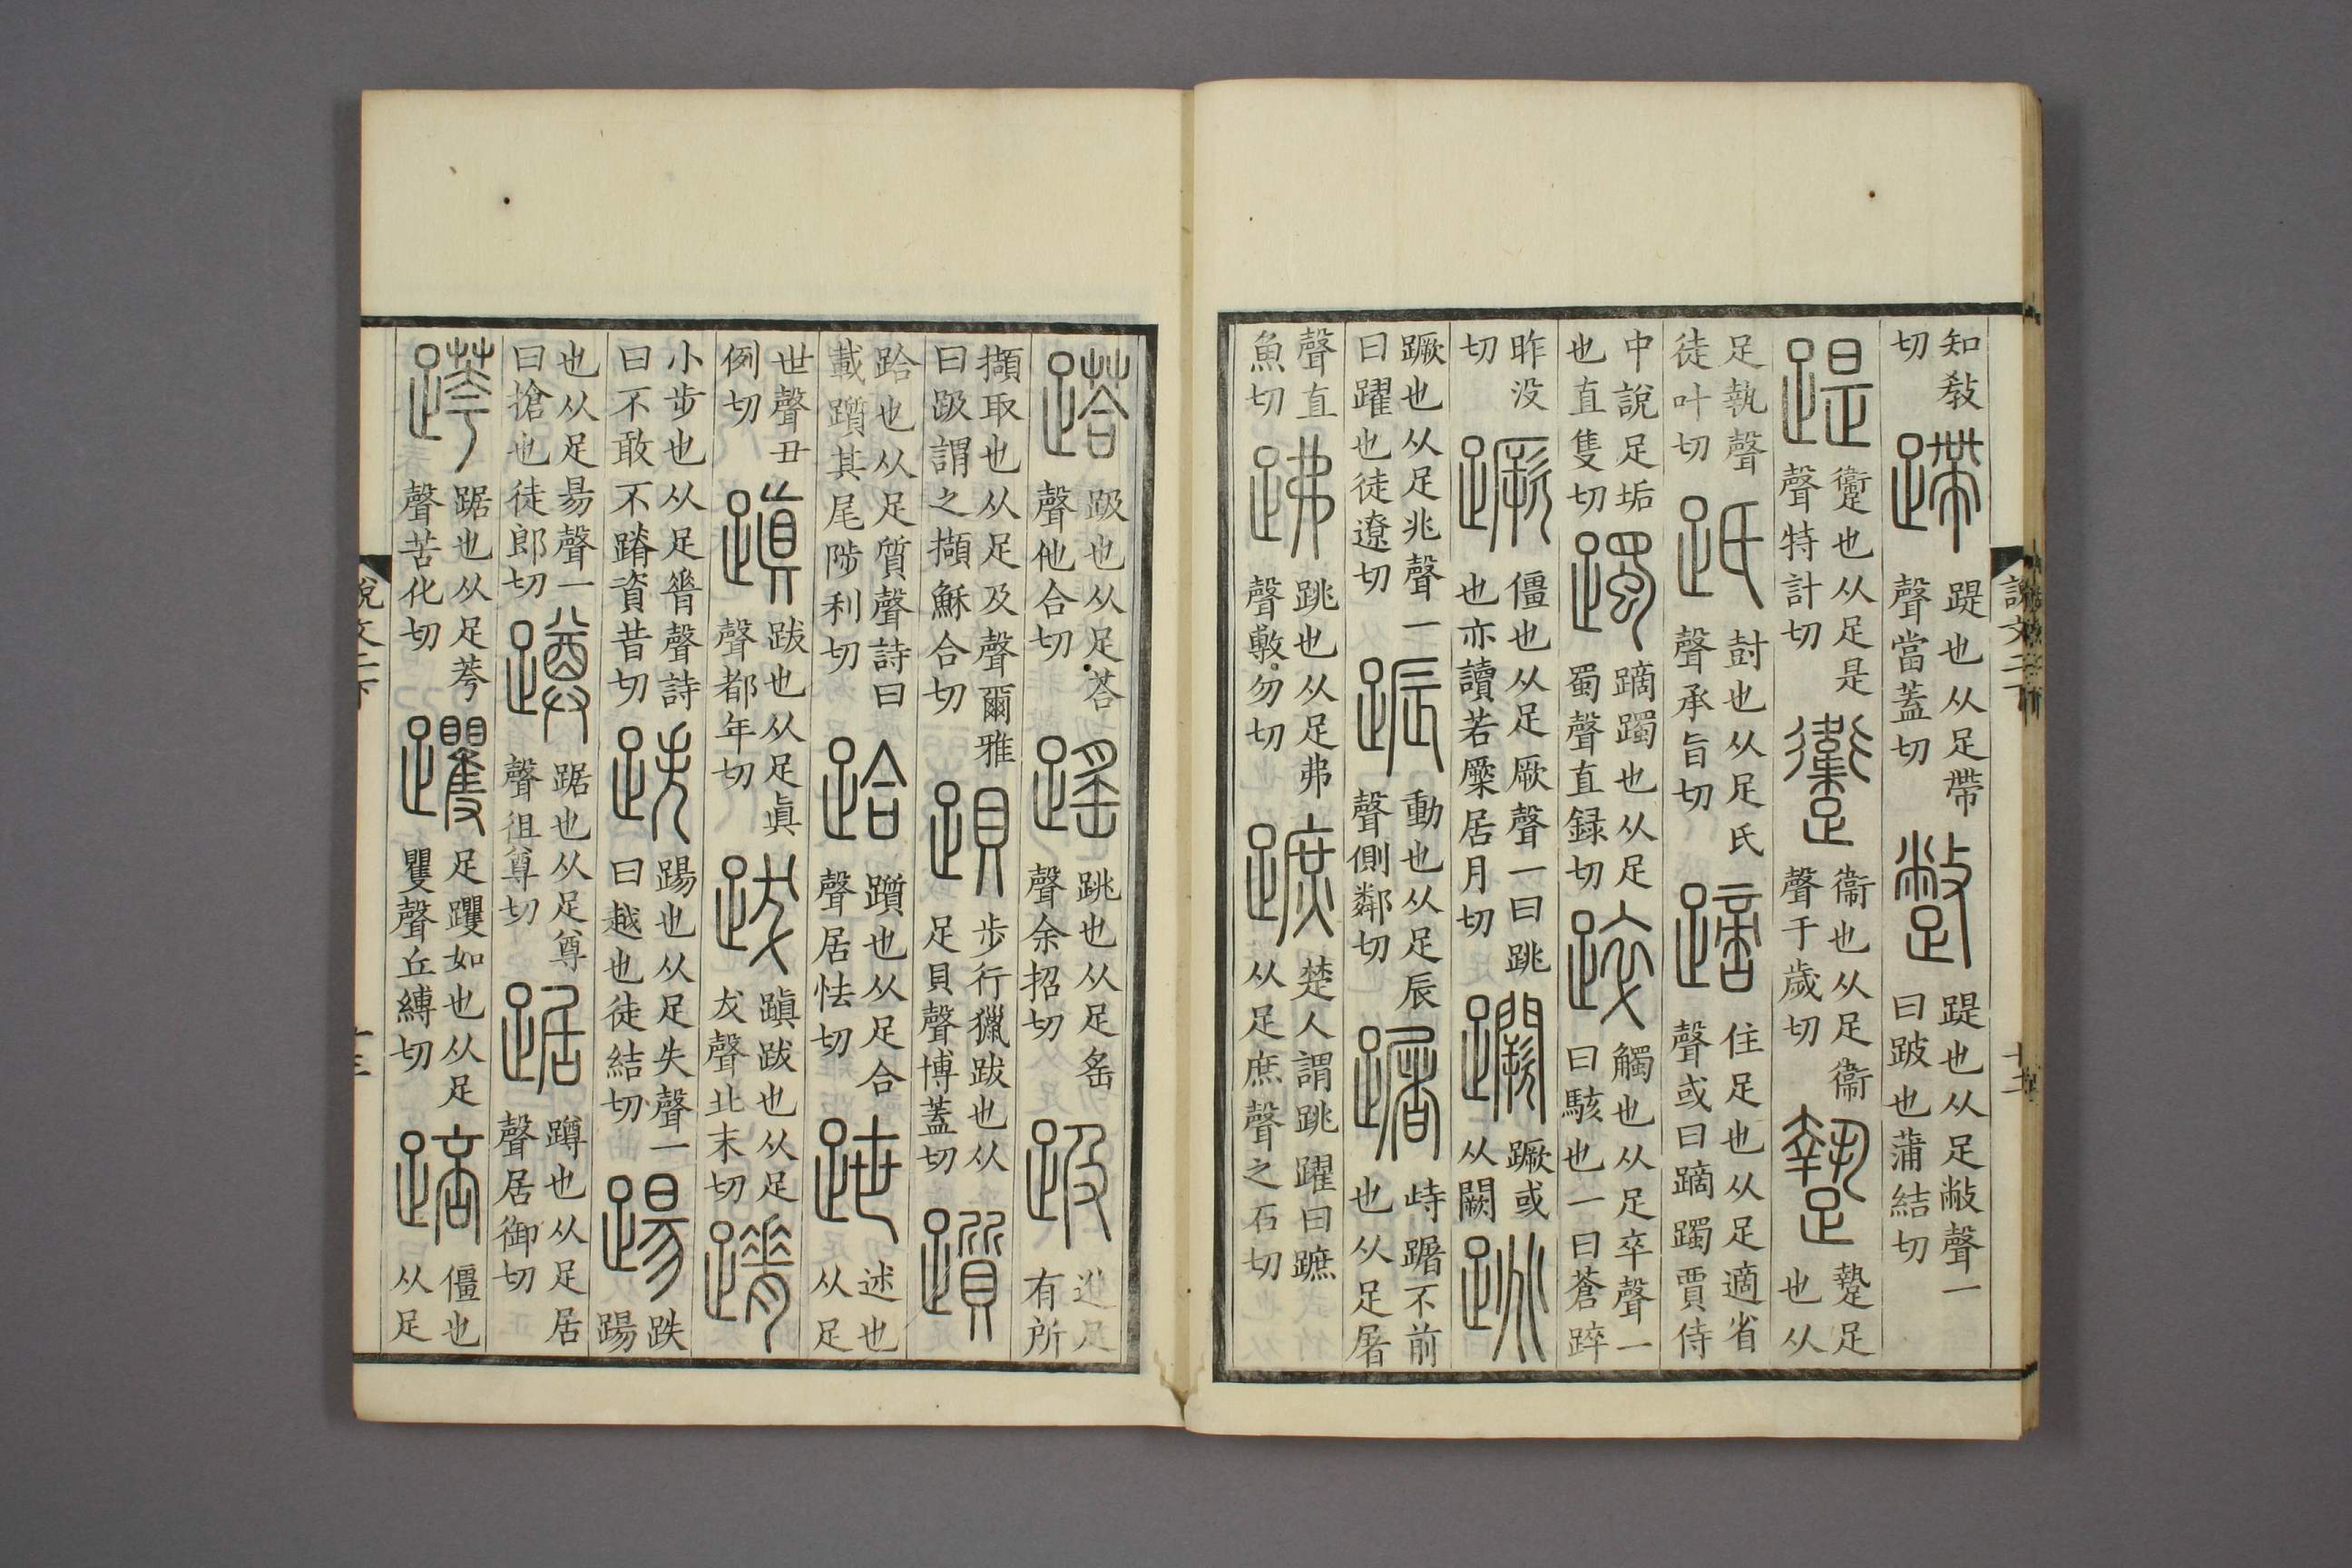 說文二下
十二
知敎切 蹛 踶也从足帶聲當蓋切 蹩 踶也从足敝聲一曰跛也蒲結切
踶 躗也从足是聲特計切 躗 衞也从足衞聲于歲切 蟄足也从
足執聲徒叶切 䟡 尌也从足氏聲承旨切 蹢 住足也从足適省聲或曰蹢躅賈侍
中說足垢也直隻切 躅 蹢躅也从足蜀聲直録切 踤 觸也从足卒聲一曰駭也一曰蒼踤
昨没切 蹶 僵也从足厥聲一曰跳也亦讀若橜居月切 𨇮 蹶或从闕 跳
蹶也从足兆聲一曰躍也徒遼切 䟴 動也从足辰聲側鄰切 䠧 峙䠧不前也从足屠
聲直魚切 𨁎 跳也从足弗聲敷勿切 蹠 楚人謂跳躍曰蹠从足庶聲之石切
䠡 䟣也从足荅聲他合切 䠛 跳也从足䍃聲余招切 䟣 進足有所
擷取也从足及聲爾雅曰䟣謂之擷穌合切 䟺 步行獵跋也从足貝聲博蓋切 躓
跲也从足質聲詩曰載躓其尾陟利切 跲 躓也从足合聲居怯切 跇 述也从足
世聲丑例切 蹎 跋也从足眞聲都年切 跋 蹎跋也从足犮聲北末切 蹐
小步也从足脊聲詩曰不敢不蹐資昔切 跌 踼也从足失聲一曰越也徒結切 踼 跌踼
也从足昜聲一曰搶也徒郎切 蹲 踞也从足尊聲徂尊切 踞 蹲也从足居聲居御切
䠸 踞也从足荂聲苦化切 躩 足躩如也从足矍聲丘縛切 踣 僵也从足
說文二下